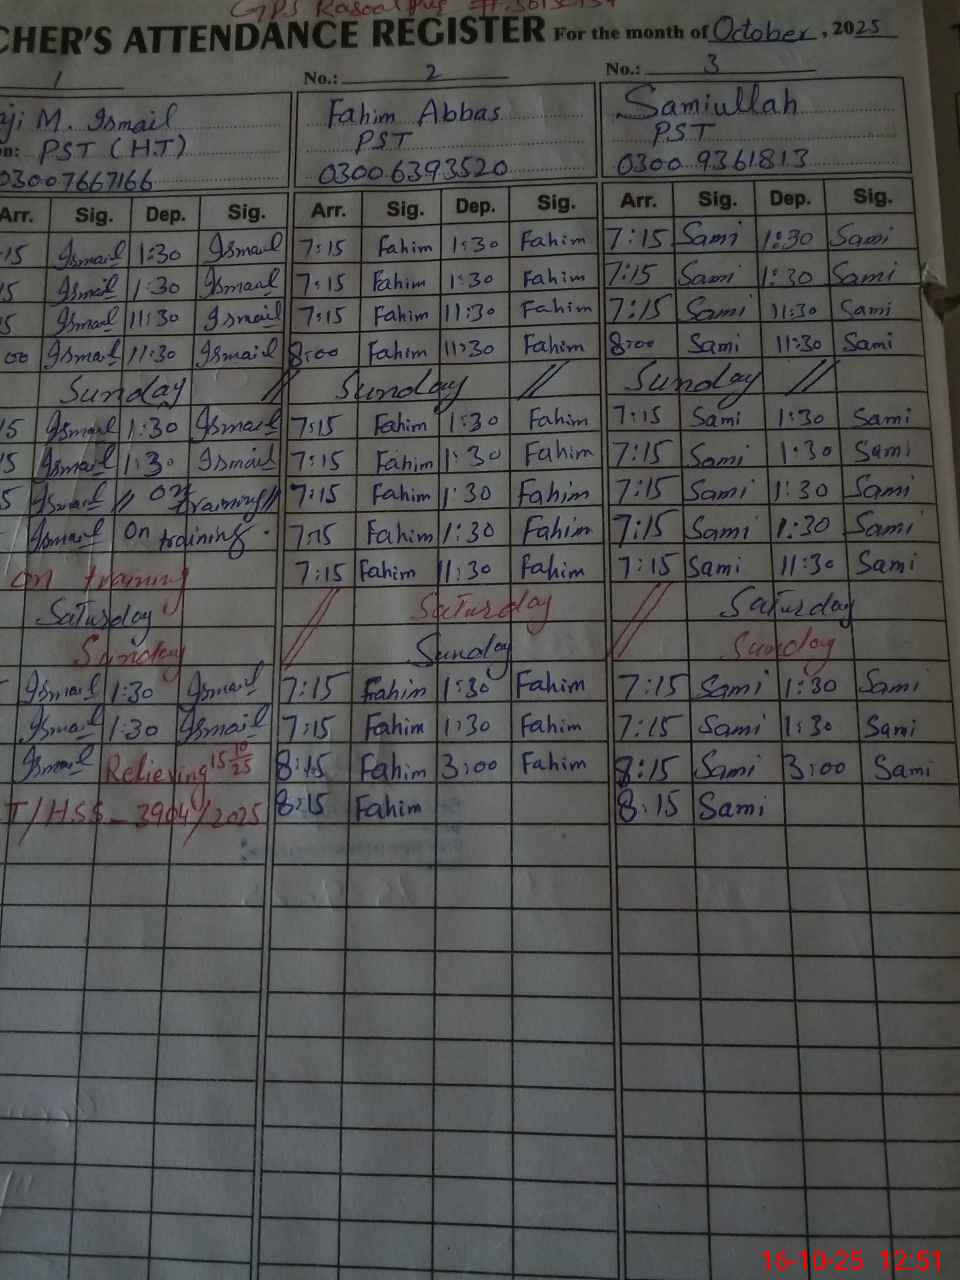 GPS Rasool Pur
CHER'S ATTENDANCE REGISTER For the month of October, 2025
1 No.: 2 No.: 3
aji M. Ismail Fahim Abbas Samiullah
on: PST (H.T) PST PST
03007667166 03006393520 03009361813
Arr. Sig. Dep. Sig. Arr. Sig. Dep. Sig. Arr. Sig. Dep. Sig.
:15 Ismail 1:30 Ismail 7:15 Fahim 1:30 Fahim 7:15 Sami 1:30 Sami
15 Ismail 1:30 Ismail 7:15 Fahim 1:30 Fahim 7:15 Sami 1:30 Sami
15 Ismail 11:30 Ismail 7:15 Fahim 11:30 Fahim 7:15 Sami 11:30 Sami
00 Ismail 11:30 Ismail 8:00 Fahim 11:30 Fahim 8:00 Sami 11:30 Sami
Sunday // Sunday // Sunday //
15 Ismail 1:30 Ismail 7:15 Fahim 1:30 Fahim 7:15 Sami 1:30 Sami
15 Ismail 1:30 Ismail 7:15 Fahim 1:30 Fahim 7:15 Sami 1:30 Sami
5 Ismail // on training // 7:15 Fahim 1:30 Fahim 7:15 Sami 1:30 Sami
Ismail on training. 7:15 Fahim 1:30 Fahim 7:15 Sami 1:30 Sami
on training 7:15 Fahim 11:30 Fahim 7:15 Sami 11:30 Sami
Saturday // Saturday // Saturday
Sunday Sunday Sunday
Ismail 1:30 Ismail 7:15 Fahim 1:30 Fahim 7:15 Sami 1:30 Sami
Ismail 1:30 Ismail 7:15 Fahim 1:30 Fahim 7:15 Sami 1:30 Sami
Ismail Relieving 15 10/25 8:15 Fahim 3:00 Fahim 8:15 Sami 3:00 Sami
T/HSS-3904/2025 8:15 Fahim 8:15 Sami
16-10-25 12:51